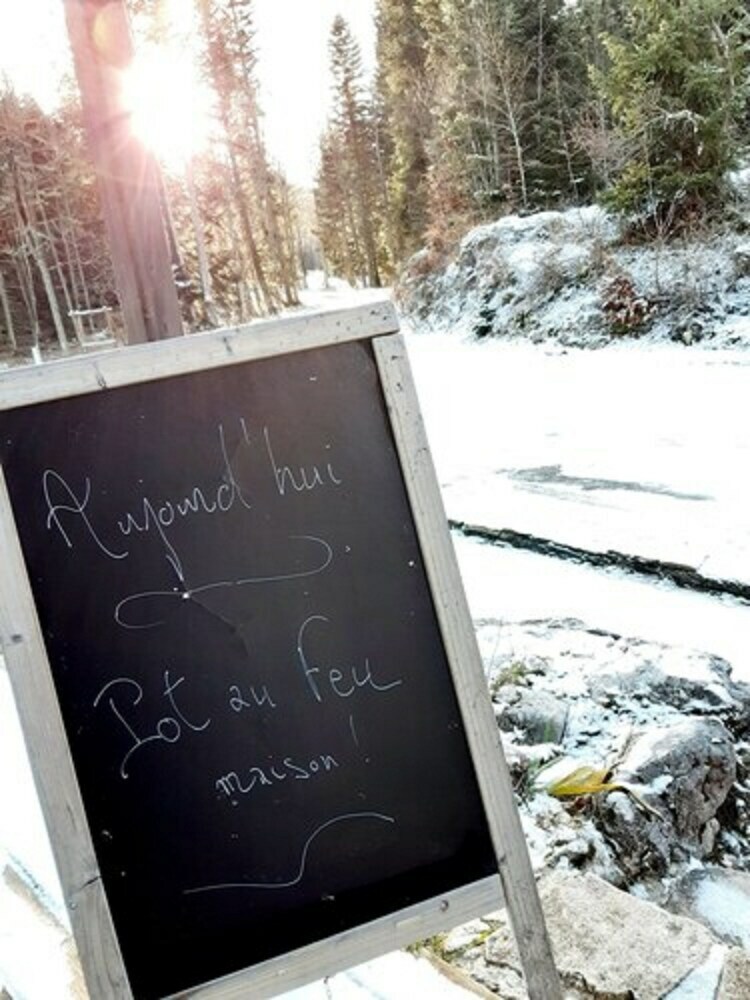 Aujourd'hui
Pot au Feu
maison!